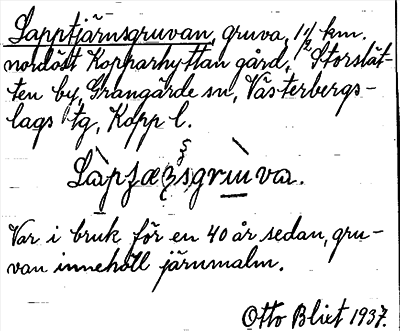 Lapptjärnsgruvan, gruva, 1½ km.
nordöst Kopparhyttan gård, Storslät-
ten by, Grangärde sn, Västerbergs-
lags tg, Kopp l.
Var i bruk för en 40 år sedan, gru-
van innehöll järnmalm.
Otto Blixt 1937.